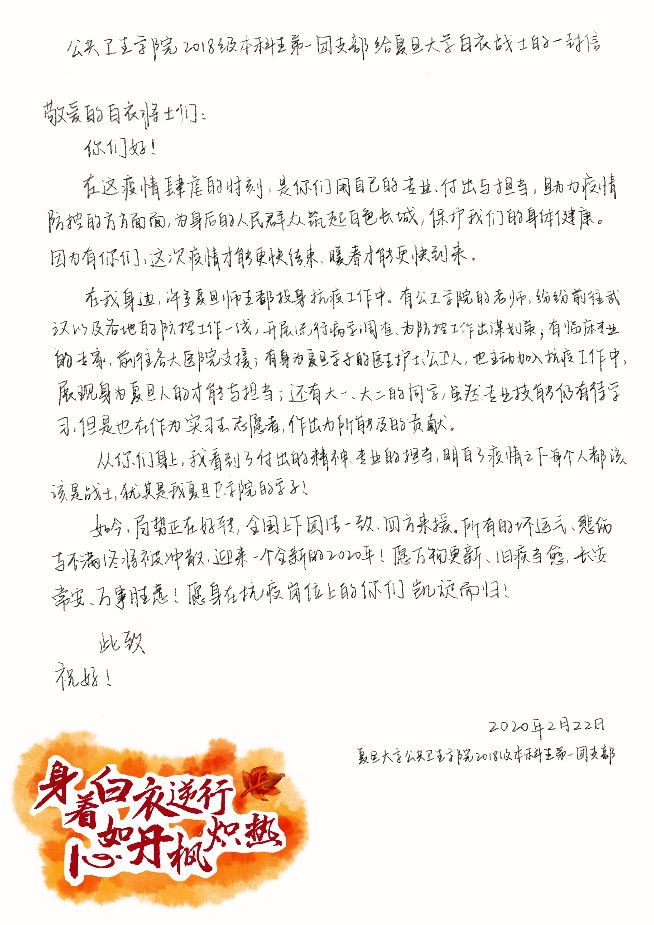 公共卫生学院2018级本科生第一团支部给复旦大学白衣战士的一封信
敬爱的白衣将士们：
你们好！
在这疫情肆虐的时刻，是你们用自己的专业、付出与担当，助力疫情
防控的方方面面，为身后的人民群众筑起白色长城，保护我们的身体健康。
因为有你们，这次疫情才能更快结束，暖春才能更快到来。
在我身边，许多复旦师生都投身抗疫工作中。有公卫学院的老师，纷纷前往武
汉以及各地的防控工作一线，开展流行病学调查、为防控工作出谋划策；有临床专业
的专家，前往各大医院支援；有身为复旦学子的医生护士、公卫人，也主动加入抗疫工作中，
展现身为复旦人的才能与担当；还有大一、大二的同学，虽然专业技能仍有待学
习，但是也在作为实习生、志愿者，作出力所能及的贡献。
从你们身上，我看到了付出的精神、专业的担当，明白了疫情之下每个人都该
该是战士，尤其是我复旦医学院的学子！
如今，局势正在好转，全国上下团结一致、四方来援。所有的坏运气、悲伤
与不满终将被冲散，迎来一个全新的2020年！愿万物更新、旧疾当愈，长安
常安、万事胜意！愿身在抗疫岗位上的你们凯旋而归！
此致
祝好！
2020年2月22日
复旦大学公共卫生学院2018级本科生第一团支部
身着白衣逆行
心如丹枫炽热